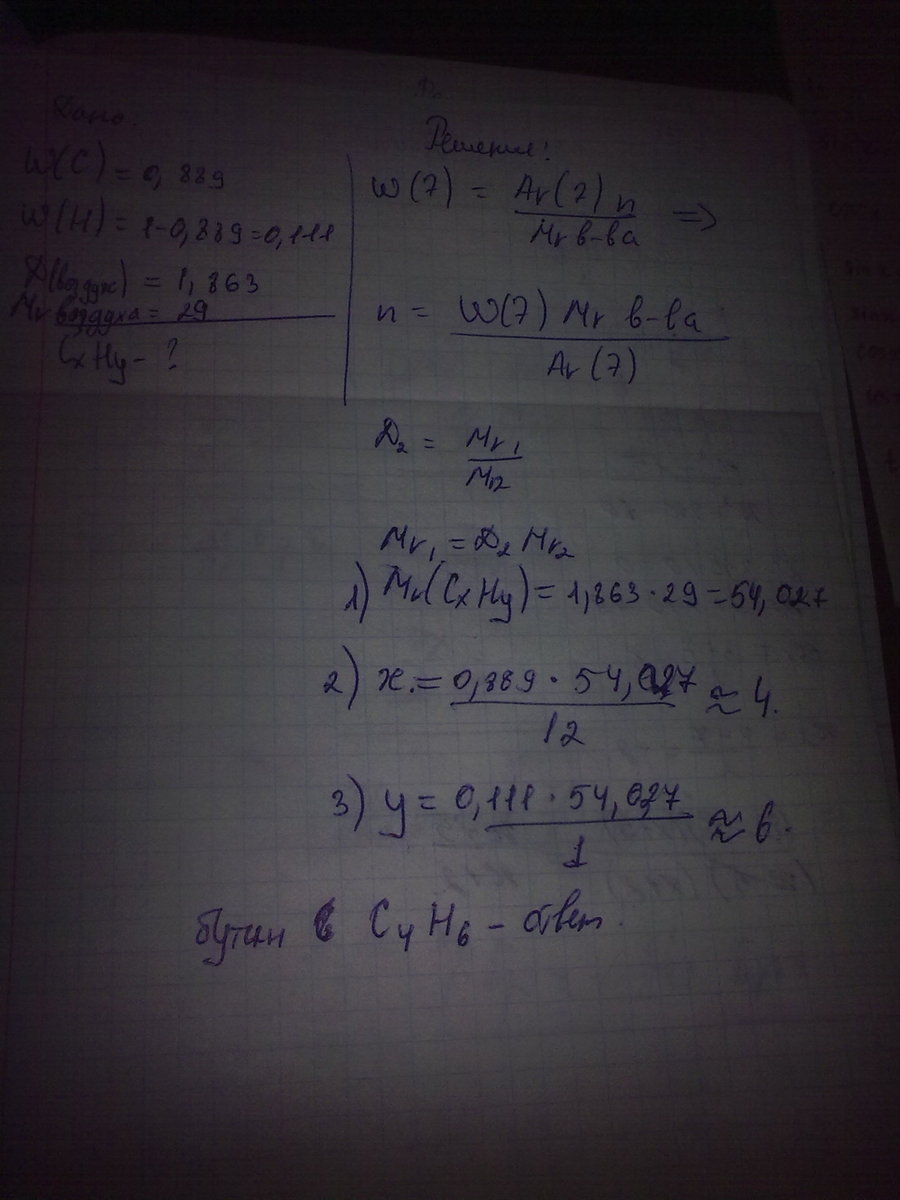 Дано:
W(C) = 0,889
W(H) = 1-0,889=0,111
D(воздух) = 1,863
Mr воздуха = 29
CxHy - ?
Решение:
W(Э) = Ar(Э) n / Mr в-ва =>
n = W(Э) Mr в-ва / Ar(Э)
D₂ = Mr₁ / Mr₂
Mr₁ = D₂ Mr₂
1) Mr(CxHy) = 1,863 · 29 = 54,027
2) x = 0,889 · 54,027 / 12 ≈ 4.
3) y = 0,111 · 54,027 / 1 ≈ 6.
C₄H₆ - ответ.